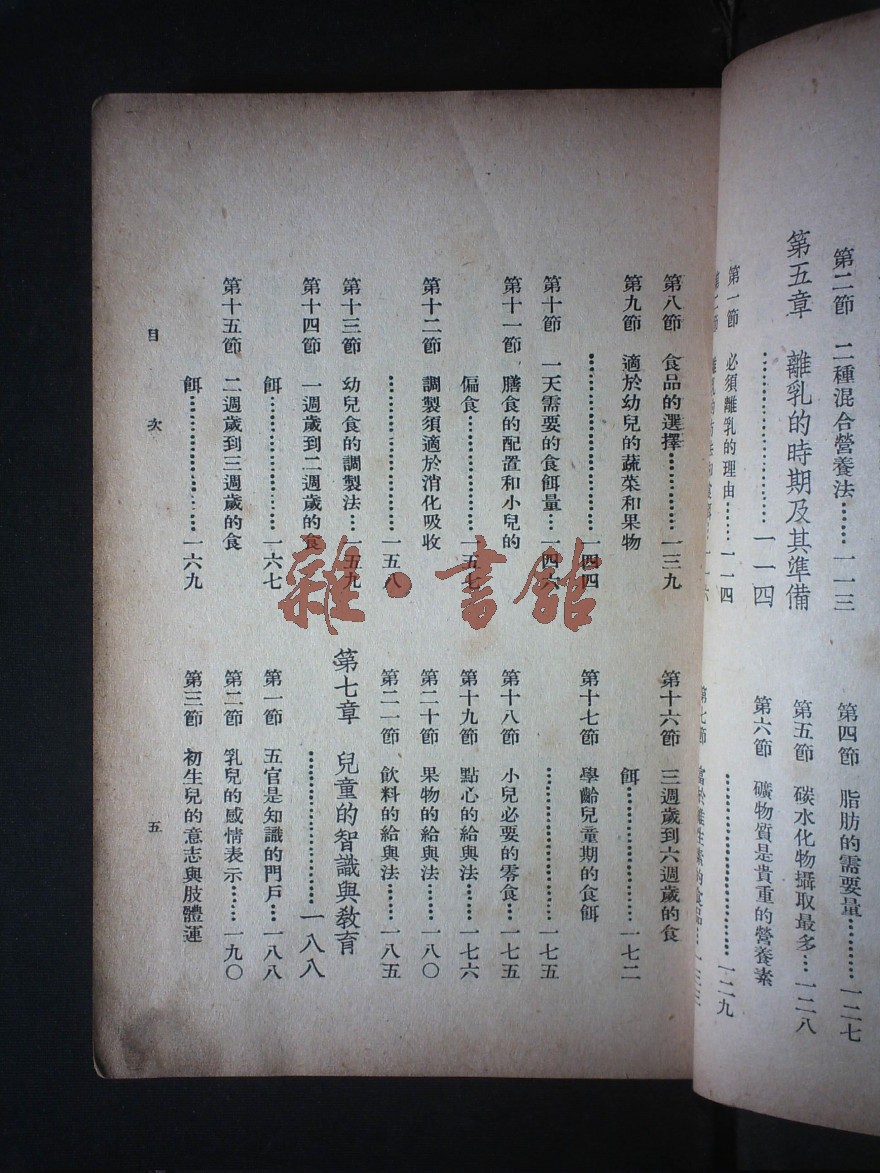 第二節　二種混合營養法……一一三
第五章　離乳的時期及其準備
……………………一一四
第一節　必須離乳的理由……一一四
第四節　脂肪的需要量…………一二七
第五節　碳水化物攝取最多…一二八
第六節　礦物質是貴重的營養素
……………………一二九
第七節　富於維生素的食品…
第八節　食品的選擇…………一三九
第九節　適於幼兒的蔬菜和果物
……………………一四四
第十節　一天需要的食餌量…一四六
第十一節　膳食的配置和小兒的
偏食……………………一五七
第十二節　調製須適於消化吸收
……………………一五八
第十三節　幼兒食的調製法…一五九
第十四節　一週歲到二週歲的食
餌……………………一六七
第十五節　二週歲到三週歲的食
餌……………………一六九
第十六節　三週歲到六週歲的食
餌……………………一七二
第十七節　學齡兒童期的食餌
……………………一七五
第十八節　小兒必要的零食…一七五
第十九節　點心的給與法……一七六
第二十節　果物的給與法……一八〇
第二一節　飲料的給與法……一八五
第七章　兒童的智識與教育
……………………一八八
第一節　五官是知識的門戶…一八八
第二節　乳兒的感情表示……一九〇
第三節　初生兒的意志與肢體運
目次
五
雜·書館